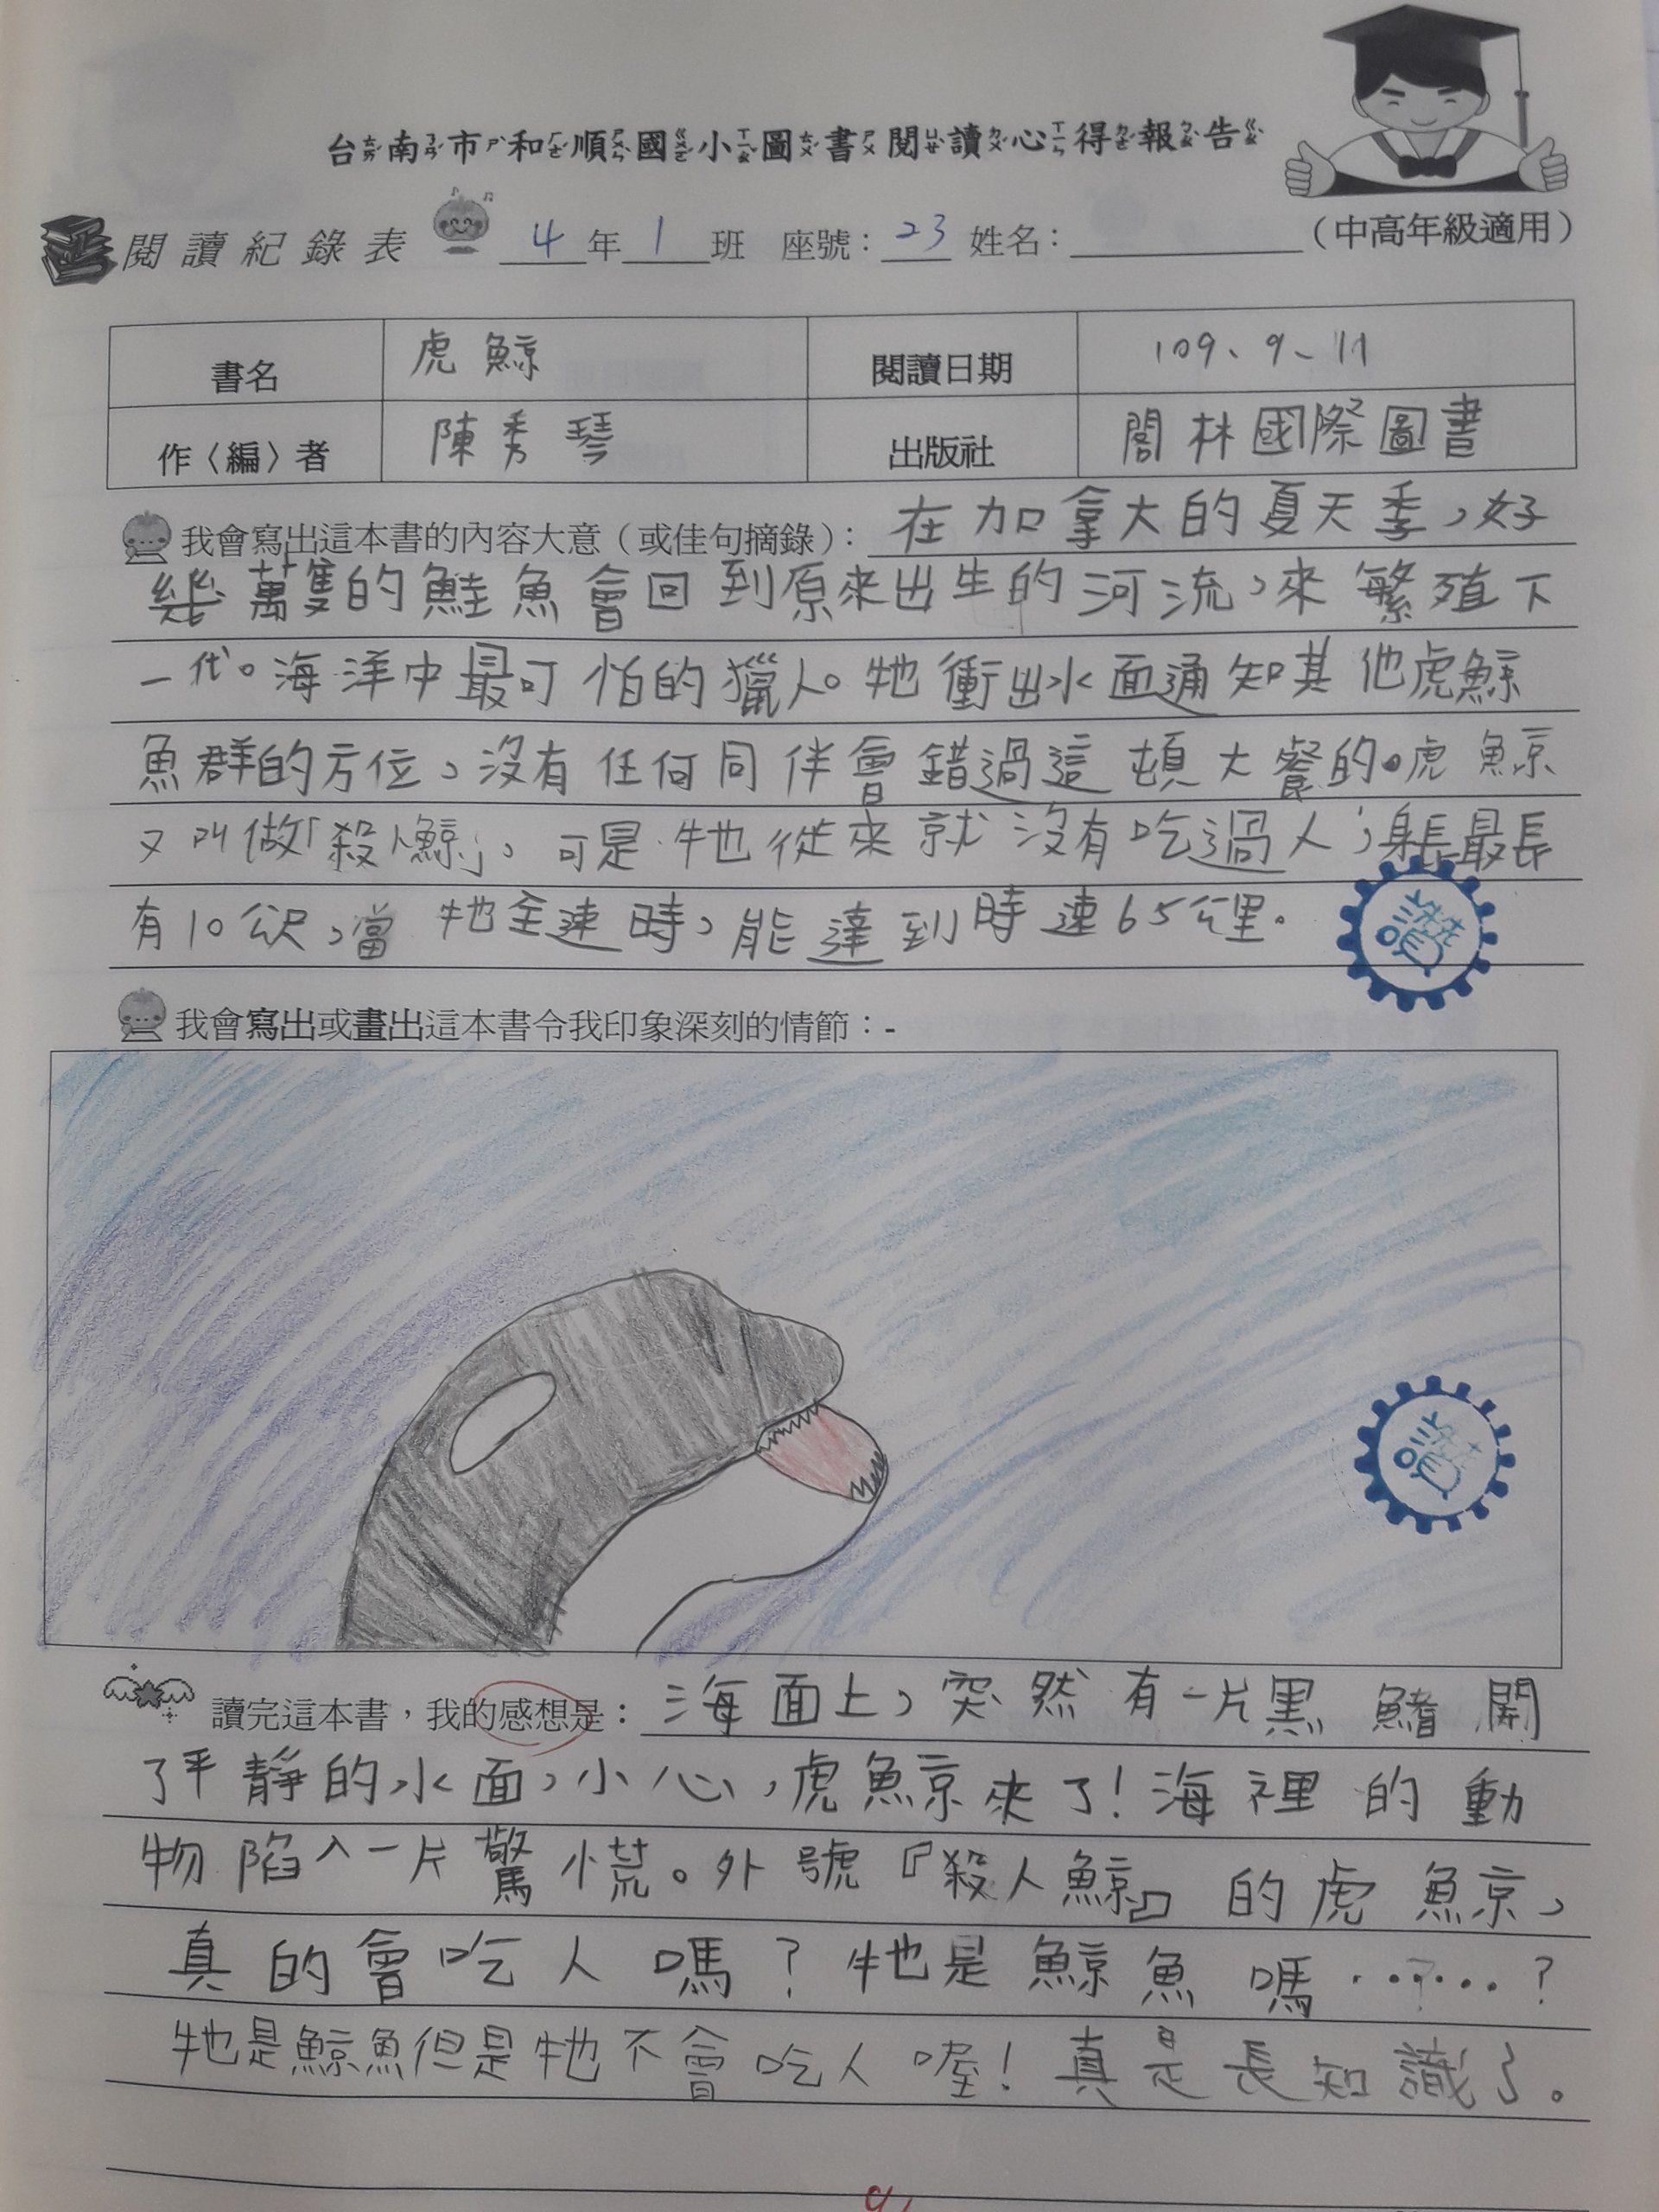 台南市和順國小圖書閱讀心得報告
閱讀紀錄表 4年1班 座號：23 姓名： （中高年級適用）
書名 虎鯨 閱讀日期 109、9、11
作〈編〉者 陳秀琴 出版社 閣林國際圖書
我會寫出這本書的內容大意（或佳句摘錄）：在加拿大的夏天季，好
幾十萬隻的鮭魚會回到原來出生的河流，來繁殖下
一代。海洋中最可怕的獵人。牠衝出水面通知其他虎鯨
魚群的方位，沒有任何同伴會錯過這頓大餐的。虎鯨
又叫做「殺人鯨」，可是牠從來就沒有吃過人；身長最長
有10公尺，當牠全速時，能達到時速65公里。
讚
我會寫出或畫出這本書令我印象深刻的情節：-
讚
讀完這本書，我的感想是：海面上，突然有一片黑鰭開
了平靜的水面，小心，虎鯨來了！海裡的動
物陷入一片驚慌。外號『殺人鯨』的虎鯨，
真的會吃人嗎？牠是鯨魚嗎……？
牠是鯨魚但是牠不會吃人喔！真是長知識了。